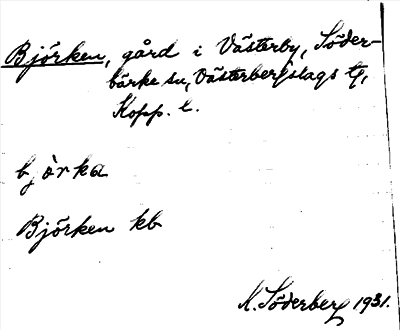 Björken, gård i Västerby, Söder-
bärke sn, Västerbergslags tg,
Kopp. l.
bjö̀rka
Björken kb
M. Söderberg 1931.